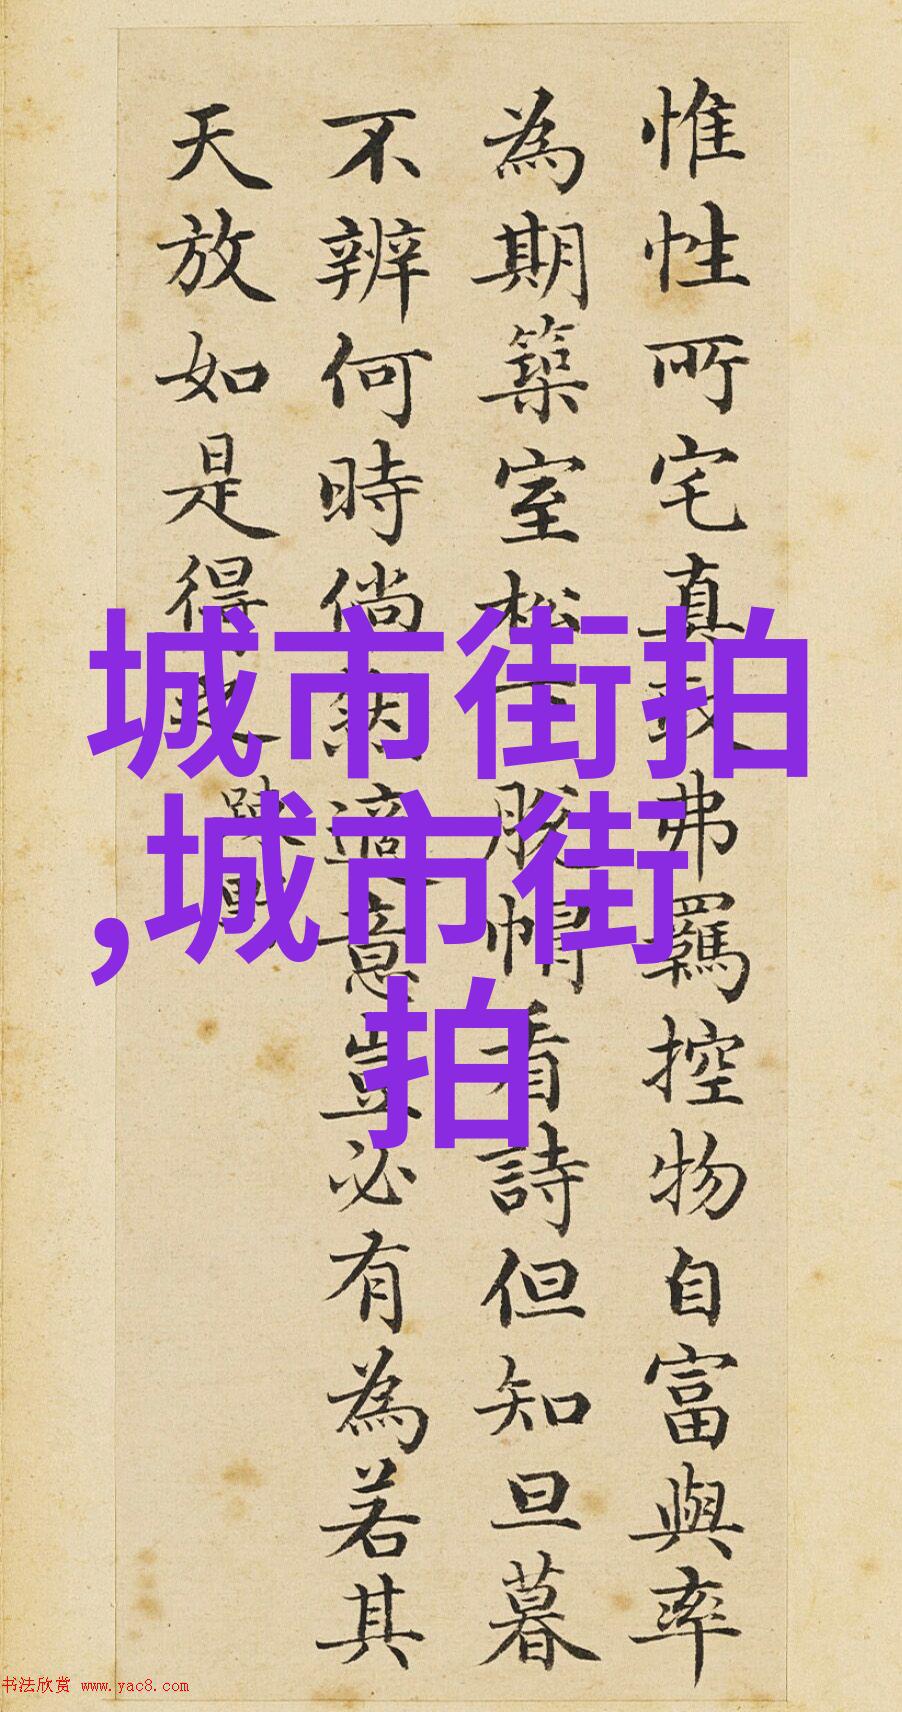 惟性所宅真取弗羈控物自富與率
為期築室松下脫帽看詩但知旦暮
不辨何時倘然適意豈必有為若其
天放如是得之
疎野
城市街拍
,城市街
拍
书法欣赏 www.yac8.com